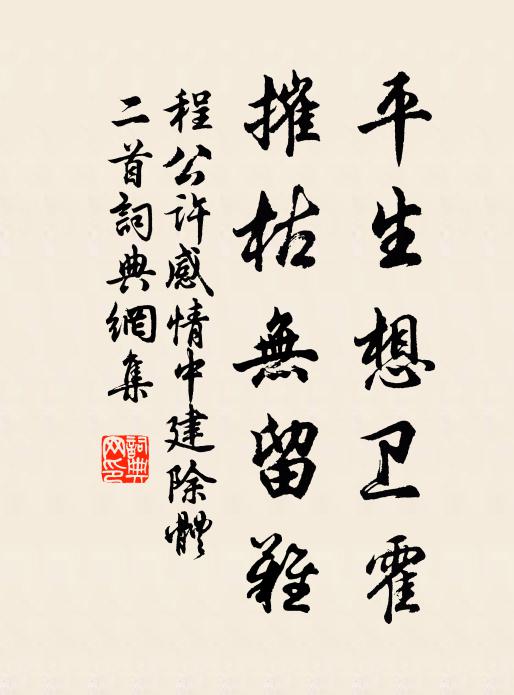 平生想卫霍
摧枯無留難
程公许感情中建除體
二首詞典網集
詞典网印